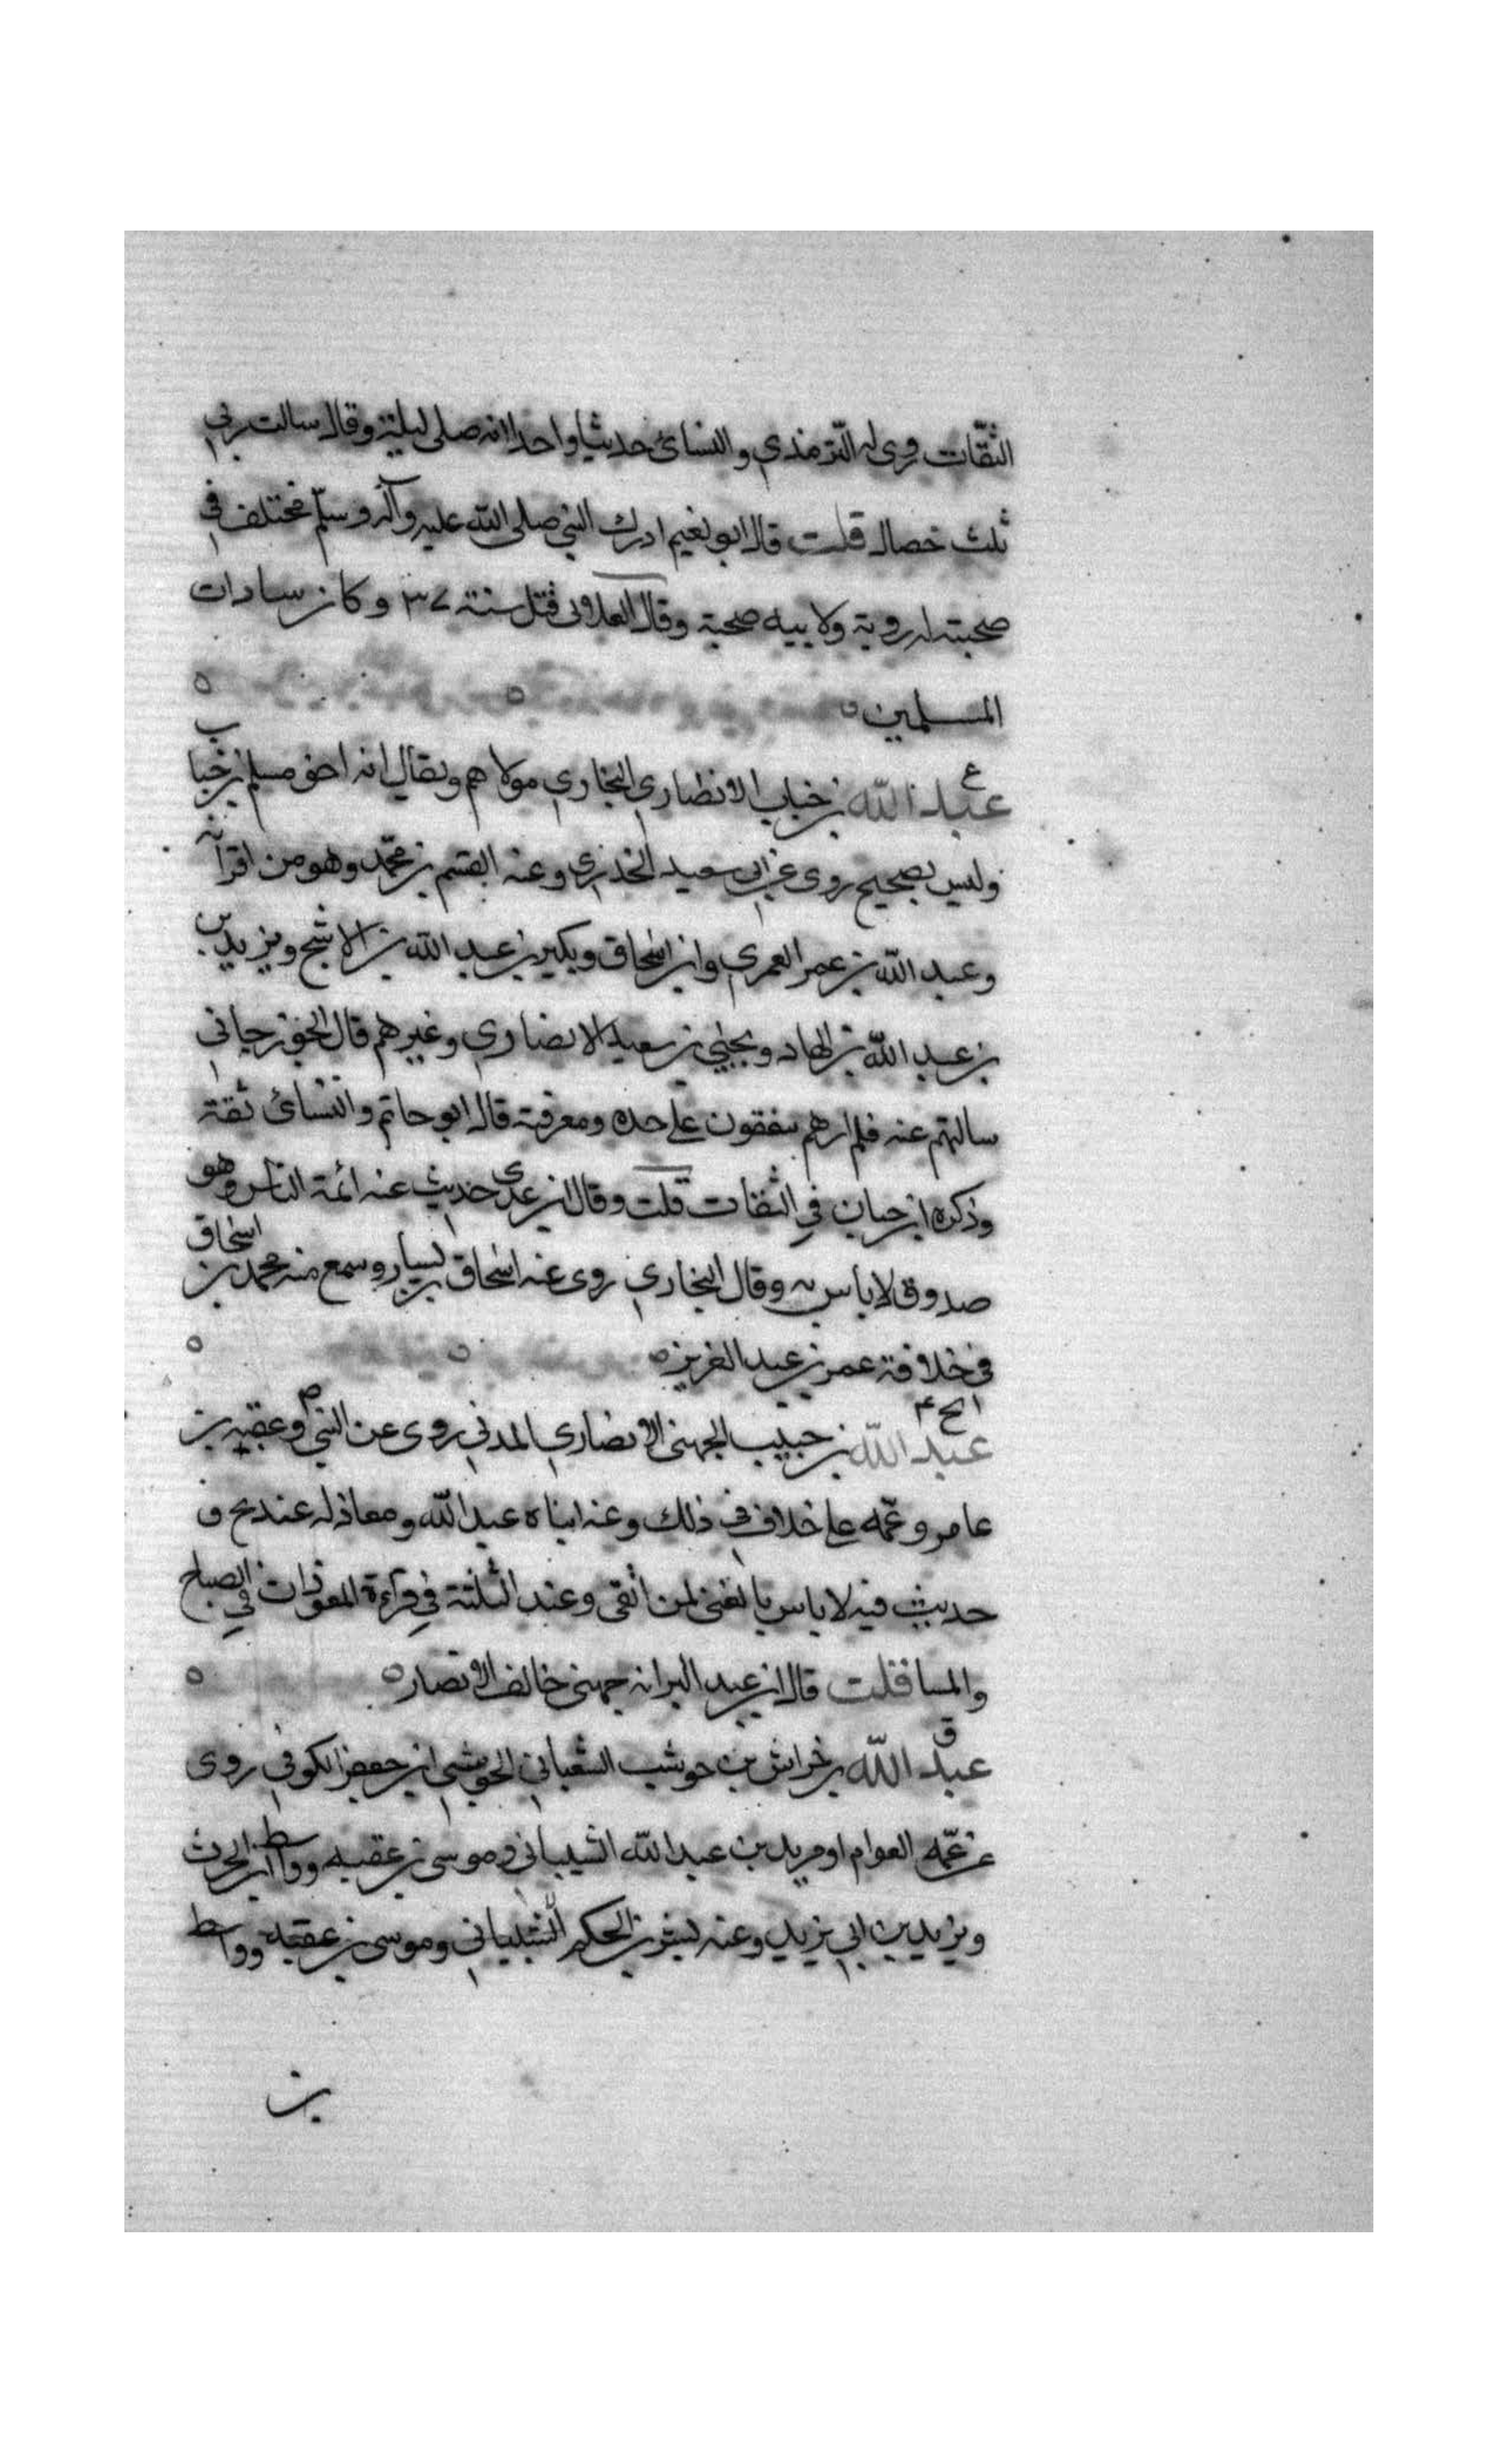 الثقات روى له الترمذي والنسائ حديثا واحدا انه صلى ليلة وقال سالت ربي
ثلث خصال قلت قال ابو نعيم ادرك النبي صلى الله عليه وآله وسلم مختلف في
صحبته له روية ولابيه صحبة وقال الغلابى قتل سنة ٣٧ وكان من سادات
المسلمين
ع
عبد الله بن خباب الانصاري النجاري مولاهم ويقال انه اخو مسلم بن خباب
وليس بصحيح روى عن ابي سعيد الخدري وعنه القسم بن محمد وهو من اقرانه
وعبد الله بن عمر العمري وابن اسحاق وبكير بن عبد الله بن الاشج ويزيد بن
بن عبد الله بن الهاد ويحيى بن سعيد الانصاري وغيرهم قال الجوزجاني
سالتهم عنه فلم ارهم يقفون على حده ومعرفته قال ابو حاتم والنسائ ثقة
وذكره ابن حبان في الثقات قلت وقال ابن عدى حديث عنه ائمة الناس وهو
صدوق لا باس به وقال البخاري روى عنه اسحاق بن يسار وسمع منه محمد بن اسحاق
في خلافة عمر بن عبد العزيز
عبد الله بن حبيب الجهنى الانصاري المدني روى عن النبي م وعقبه بن
عامر وعمه على خلاف في ذلك وعنه ابناه عبد الله ومعاذ له عند بخ ق
حديث فيه لا باس بالغنى لمن اتقى وعند الثلثة في قرآءة المعوذات في الصباح
والمسا قلت قال ابن عبد البر انه جهنى حالف الانصار
ق
عبد الله بن خراش بن حوشب الشيباني الحوشبي ابو جعفر الكوفي روى
عن عمه العوام او مريد بن عبد الله الشيباني وموسى بن عقبه وواسط ابن الحرث
ويزيد بن ابي يزيد وعنه بشر بن الحكم الشيباني وموسى بن عقبه وواسط
بن